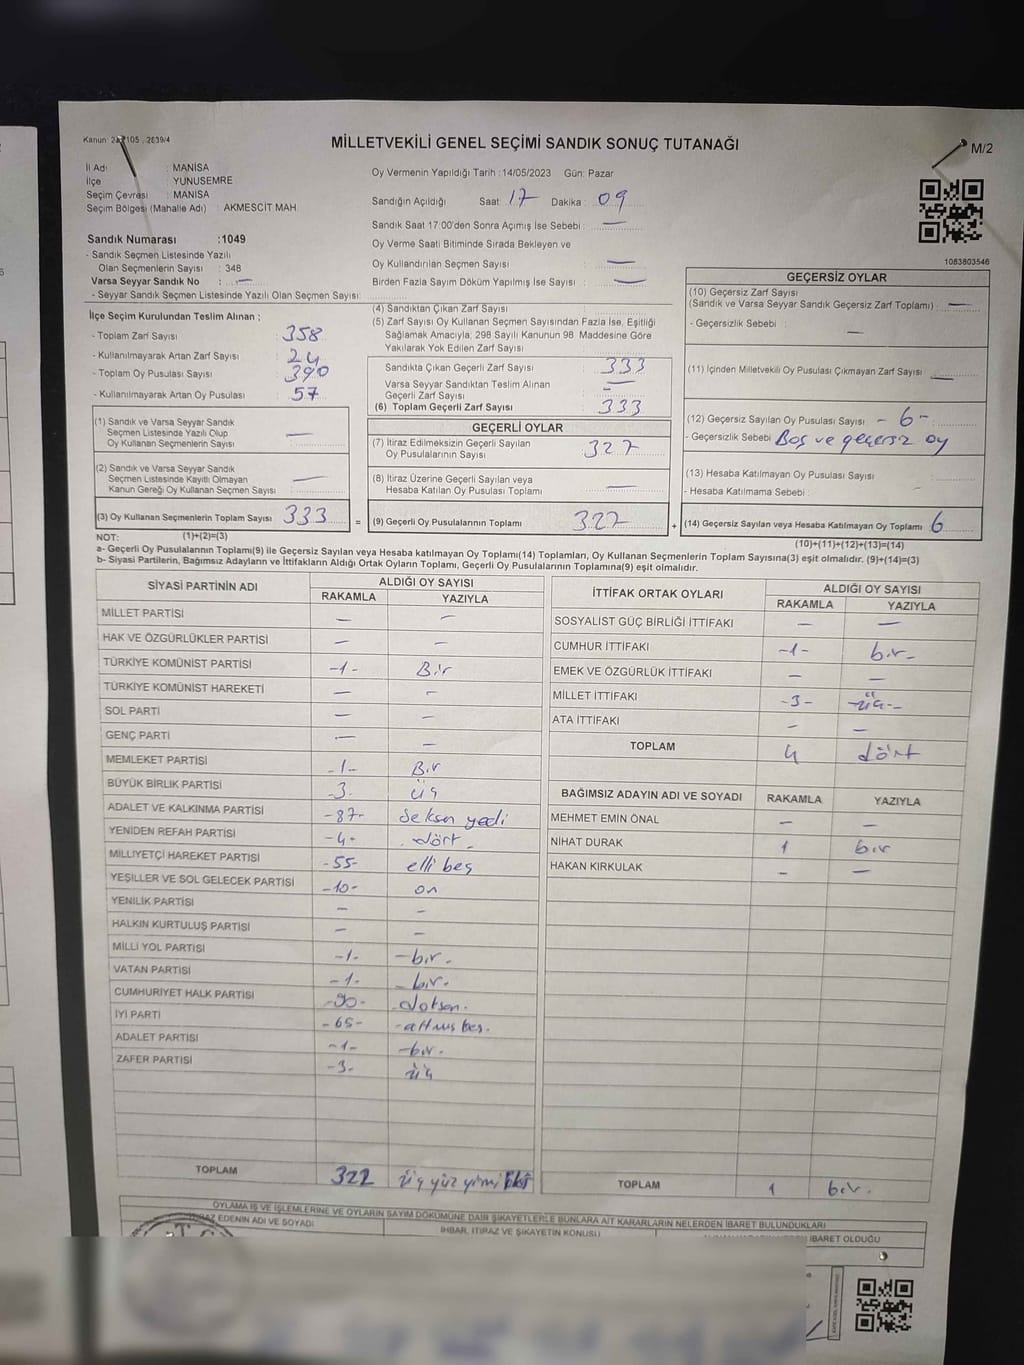 Kanun: 2839/4
MİLLETVEKİLİ GENEL SEÇİMİ SANDIK SONUÇ TUTANAĞI
M/2
İl Adı : MANİSA
İlçe : YUNUSEMRE
Seçim Çevresi : MANİSA
Seçim Bölgesi (Mahalle Adı) : AKMESCİT MAH.
Sandık Numarası :1049
- Sandık Seçmen Listesinde Yazılı
Olan Seçmenlerin Sayısı : 348
Varsa Seyyar Sandık No : —
- Seyyar Sandık Seçmen Listesinde Yazılı Olan Seçmen Sayısı:
Oy Vermenin Yapıldığı Tarih :14/05/2023 Gün: Pazar
Sandığın Açıldığı Saat: 17 Dakika: 09
Sandık Saat 17:00'den Sonra Açımış İse Sebebi : —
Oy Verme Saati Bitiminde Sırada Bekleyen ve
Oy Kullandırılan Seçmen Sayısı : —
Birden Fazla Sayım Döküm Yapılmış İse Sayısı : —
1083803546
İlçe Seçim Kurulundan Teslim Alınan ;
- Toplam Zarf Sayısı : 358
- Kullanılmayarak Artan Zarf Sayısı : 24
- Toplam Oy Pusulası Sayısı : 390
- Kullanılmayarak Artan Oy Pusulası : 57
(1) Sandık ve Varsa Seyyar Sandık
Seçmen Listesinde Yazılı Olup
Oy Kullanan Seçmenlerin Sayısı : —
(2) Sandık ve Varsa Seyyar Sandık
Seçmen Listesinde Kayıtlı Olmayan
Kanun Gereği Oy Kullanan Seçmen Sayısı : —
(3) Oy Kullanan Seçmenlerin Toplam Sayısı : 333
(1)+(2)=(3)
(4) Sandıktan Çıkan Zarf Sayısı :
(5) Zarf Sayısı Oy Kullanan Seçmen Sayısından Fazla İse, Eşitliği
Sağlamak Amacıyla; 298 Sayılı Kanunun 98 Maddesine Göre
Yakılarak Yok Edilen Zarf Sayısı :
Sandıkta Çıkan Geçerli Zarf Sayısı : 333
Varsa Seyyar Sandıktan Teslim Alınan
Geçerli Zarf Sayısı : —
(6) Toplam Geçerli Zarf Sayısı : 333
GEÇERLİ OYLAR
(7) İtiraz Edilmeksizin Geçerli Sayılan
Oy Pusulalarının Sayısı : 327
(8) İtiraz Üzerine Geçerli Sayılan veya
Hesaba Katılan Oy Pusulası Toplamı : —
= (9) Geçerli Oy Pusulalarının Toplamı : 327
GEÇERSİZ OYLAR
(10) Geçersiz Zarf Sayısı
(Sandık ve Varsa Seyyar Sandık Geçersiz Zarf Toplamı) : —
- Geçersizlik Sebebi : —
(11) İçinden Milletvekili Oy Pusulası Çıkmayan Zarf Sayısı : —
(12) Geçersiz Sayılan Oy Pusulası Sayısı : - 6 -
- Geçersizlik Sebebi : Boş ve geçersiz oy
(13) Hesaba Katılmayan Oy Pusulası Sayısı :
- Hesaba Katılmama Sebebi :
+ (14) Geçersiz Sayılan veya Hesaba Katılmayan Oy Toplamı : 6
(10)+(11)+(12)+(13)=(14)
NOT:
a- Geçerli Oy Pusulalarının Toplamı(9) ile Geçersiz Sayılan veya Hesaba katılmayan Oy Toplamı(14) Toplamları, Oy Kullanan Seçmenlerin Toplam Sayısına(3) eşit olmalıdır. (9)+(14)=(3)
b- Siyasi Partilerin, Bağımsız Adayların ve İttifakların Aldığı Ortak Oyların Toplamı, Geçerli Oy Pusulalarının Toplamına(9) eşit olmalıdır.
SİYASİ PARTİNİN ADI ALDIĞI OY SAYISI
RAKAMLA YAZIYLA
MİLLET PARTİSİ — —
HAK VE ÖZGÜRLÜKLER PARTİSİ — —
TÜRKİYE KOMÜNİST PARTİSİ -1- Bir
TÜRKİYE KOMÜNİST HAREKETİ — —
SOL PARTİ — —
GENÇ PARTİ — —
MEMLEKET PARTİSİ -1- Bir
BÜYÜK BİRLİK PARTİSİ -3- üç
ADALET VE KALKINMA PARTİSİ -87- Seksen yedi
YENİDEN REFAH PARTİSİ -4- dört
MİLLİYETÇİ HAREKET PARTİSİ -55- elli beş
YEŞİLLER VE SOL GELECEK PARTİSİ -10- on
YENİLİK PARTİSİ — —
HALKIN KURTULUŞ PARTİSİ — —
MİLLİ YOL PARTİSİ -1- -bir-
VATAN PARTİSİ -1- -bir-
CUMHURİYET HALK PARTİSİ -90- -doksan-
İYİ PARTİ -65- -altmış beş-
ADALET PARTİSİ -1- -bir-
ZAFER PARTİSİ -3- üç
TOPLAM 322 üç yüz yirmi iki
İTTİFAK ORTAK OYLARI ALDIĞI OY SAYISI
RAKAMLA YAZIYLA
SOSYALİST GÜÇ BİRLİĞİ İTTİFAKI — —
CUMHUR İTTİFAKI -1- bir-
EMEK VE ÖZGÜRLÜK İTTİFAKI — —
MİLLET İTTİFAKI -3- -üç-
ATA İTTİFAKI — —
TOPLAM 4 dört
BAĞIMSIZ ADAYIN ADI VE SOYADI RAKAMLA YAZIYLA
MEHMET EMİN ÖNAL — —
NİHAT DURAK 1 bir
HAKAN KIRKULAK — —
TOPLAM 1 bir.
OYLAMA İŞ VE İŞLEMLERİNE VE OYLARIN SAYIM DÖKÜMÜNE DAİR ŞİKAYETLERLE BUNLARA AİT KARARLARIN NELERDEN İBARET BULUNDUKLARI
EDENİN ADI VE SOYADI
İHBAR, İTİRAZ VE ŞİKAYETİN KONUSU
İBARET OLDUĞU